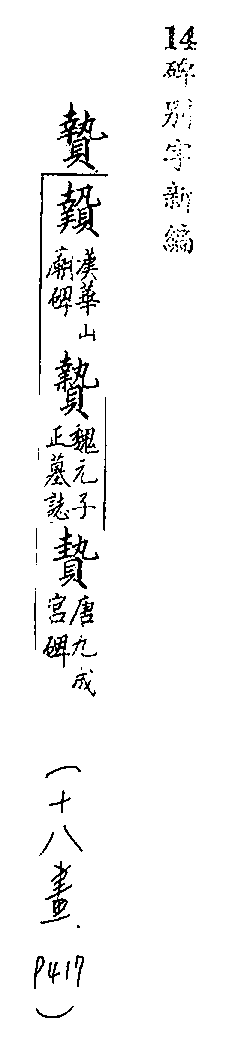 14碑別字新編
贄
贄漢華山廟碑贄魏元子正墓誌贄唐九成宮碑
(十八畫.P417)